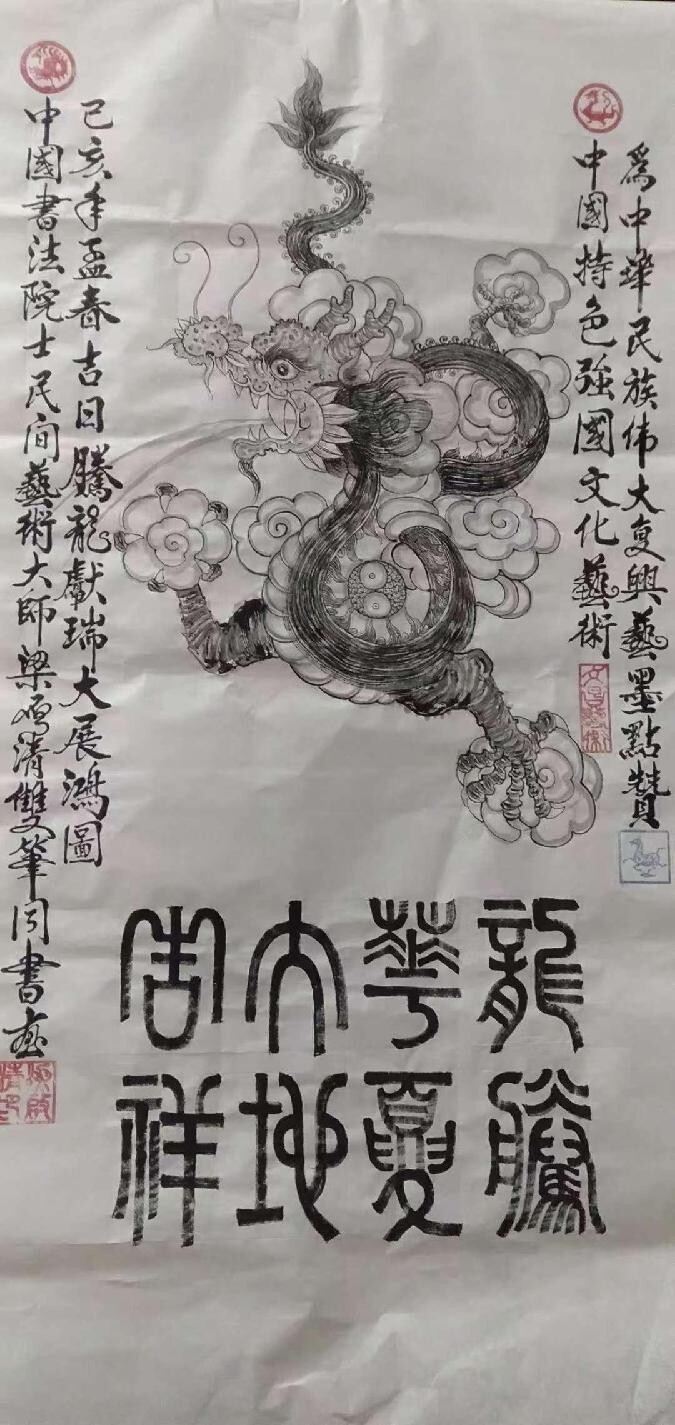 爲中華民族伟大复興藝墨點贊
中國特色強國文化藝術
龍騰
華夏
大地
周祥
己亥年孟春吉日騰龍獻瑞大展鴻圖
中國書法院士民间藝術大師梁鸣清雙筆同書画